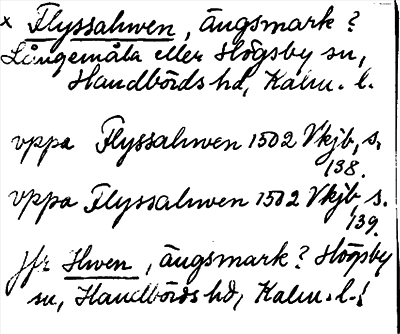 x Flyssahwen, ängsmark?
Långemåla eller Högsby sn,
Handbörds hd, Kalm. l.
vppa Flyssahwen 1502 Vkjb, s.
138.
vppa Flyssahwen 1502 Vkjb, s.
139.
jfr Hwen, ängsmark? Högsby
sn, Handbörds hd, Kalm. l.!